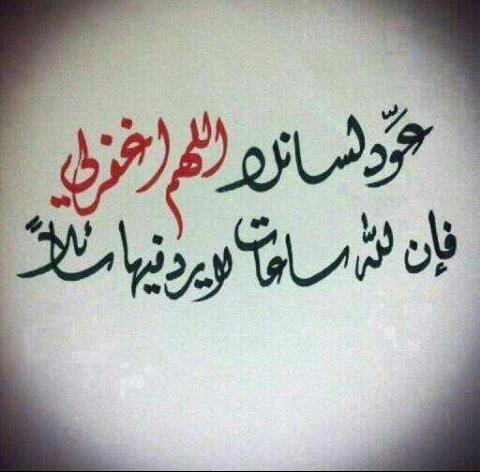 عوّد لسانك اللهم اغفر لي
فإن لله ساعات لا يرد فيها سائلاً